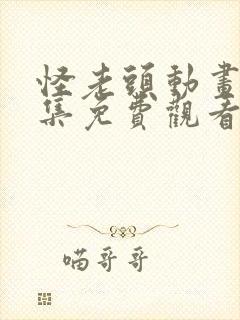 怪老頭動畫
集免費觀看
喵哥哥